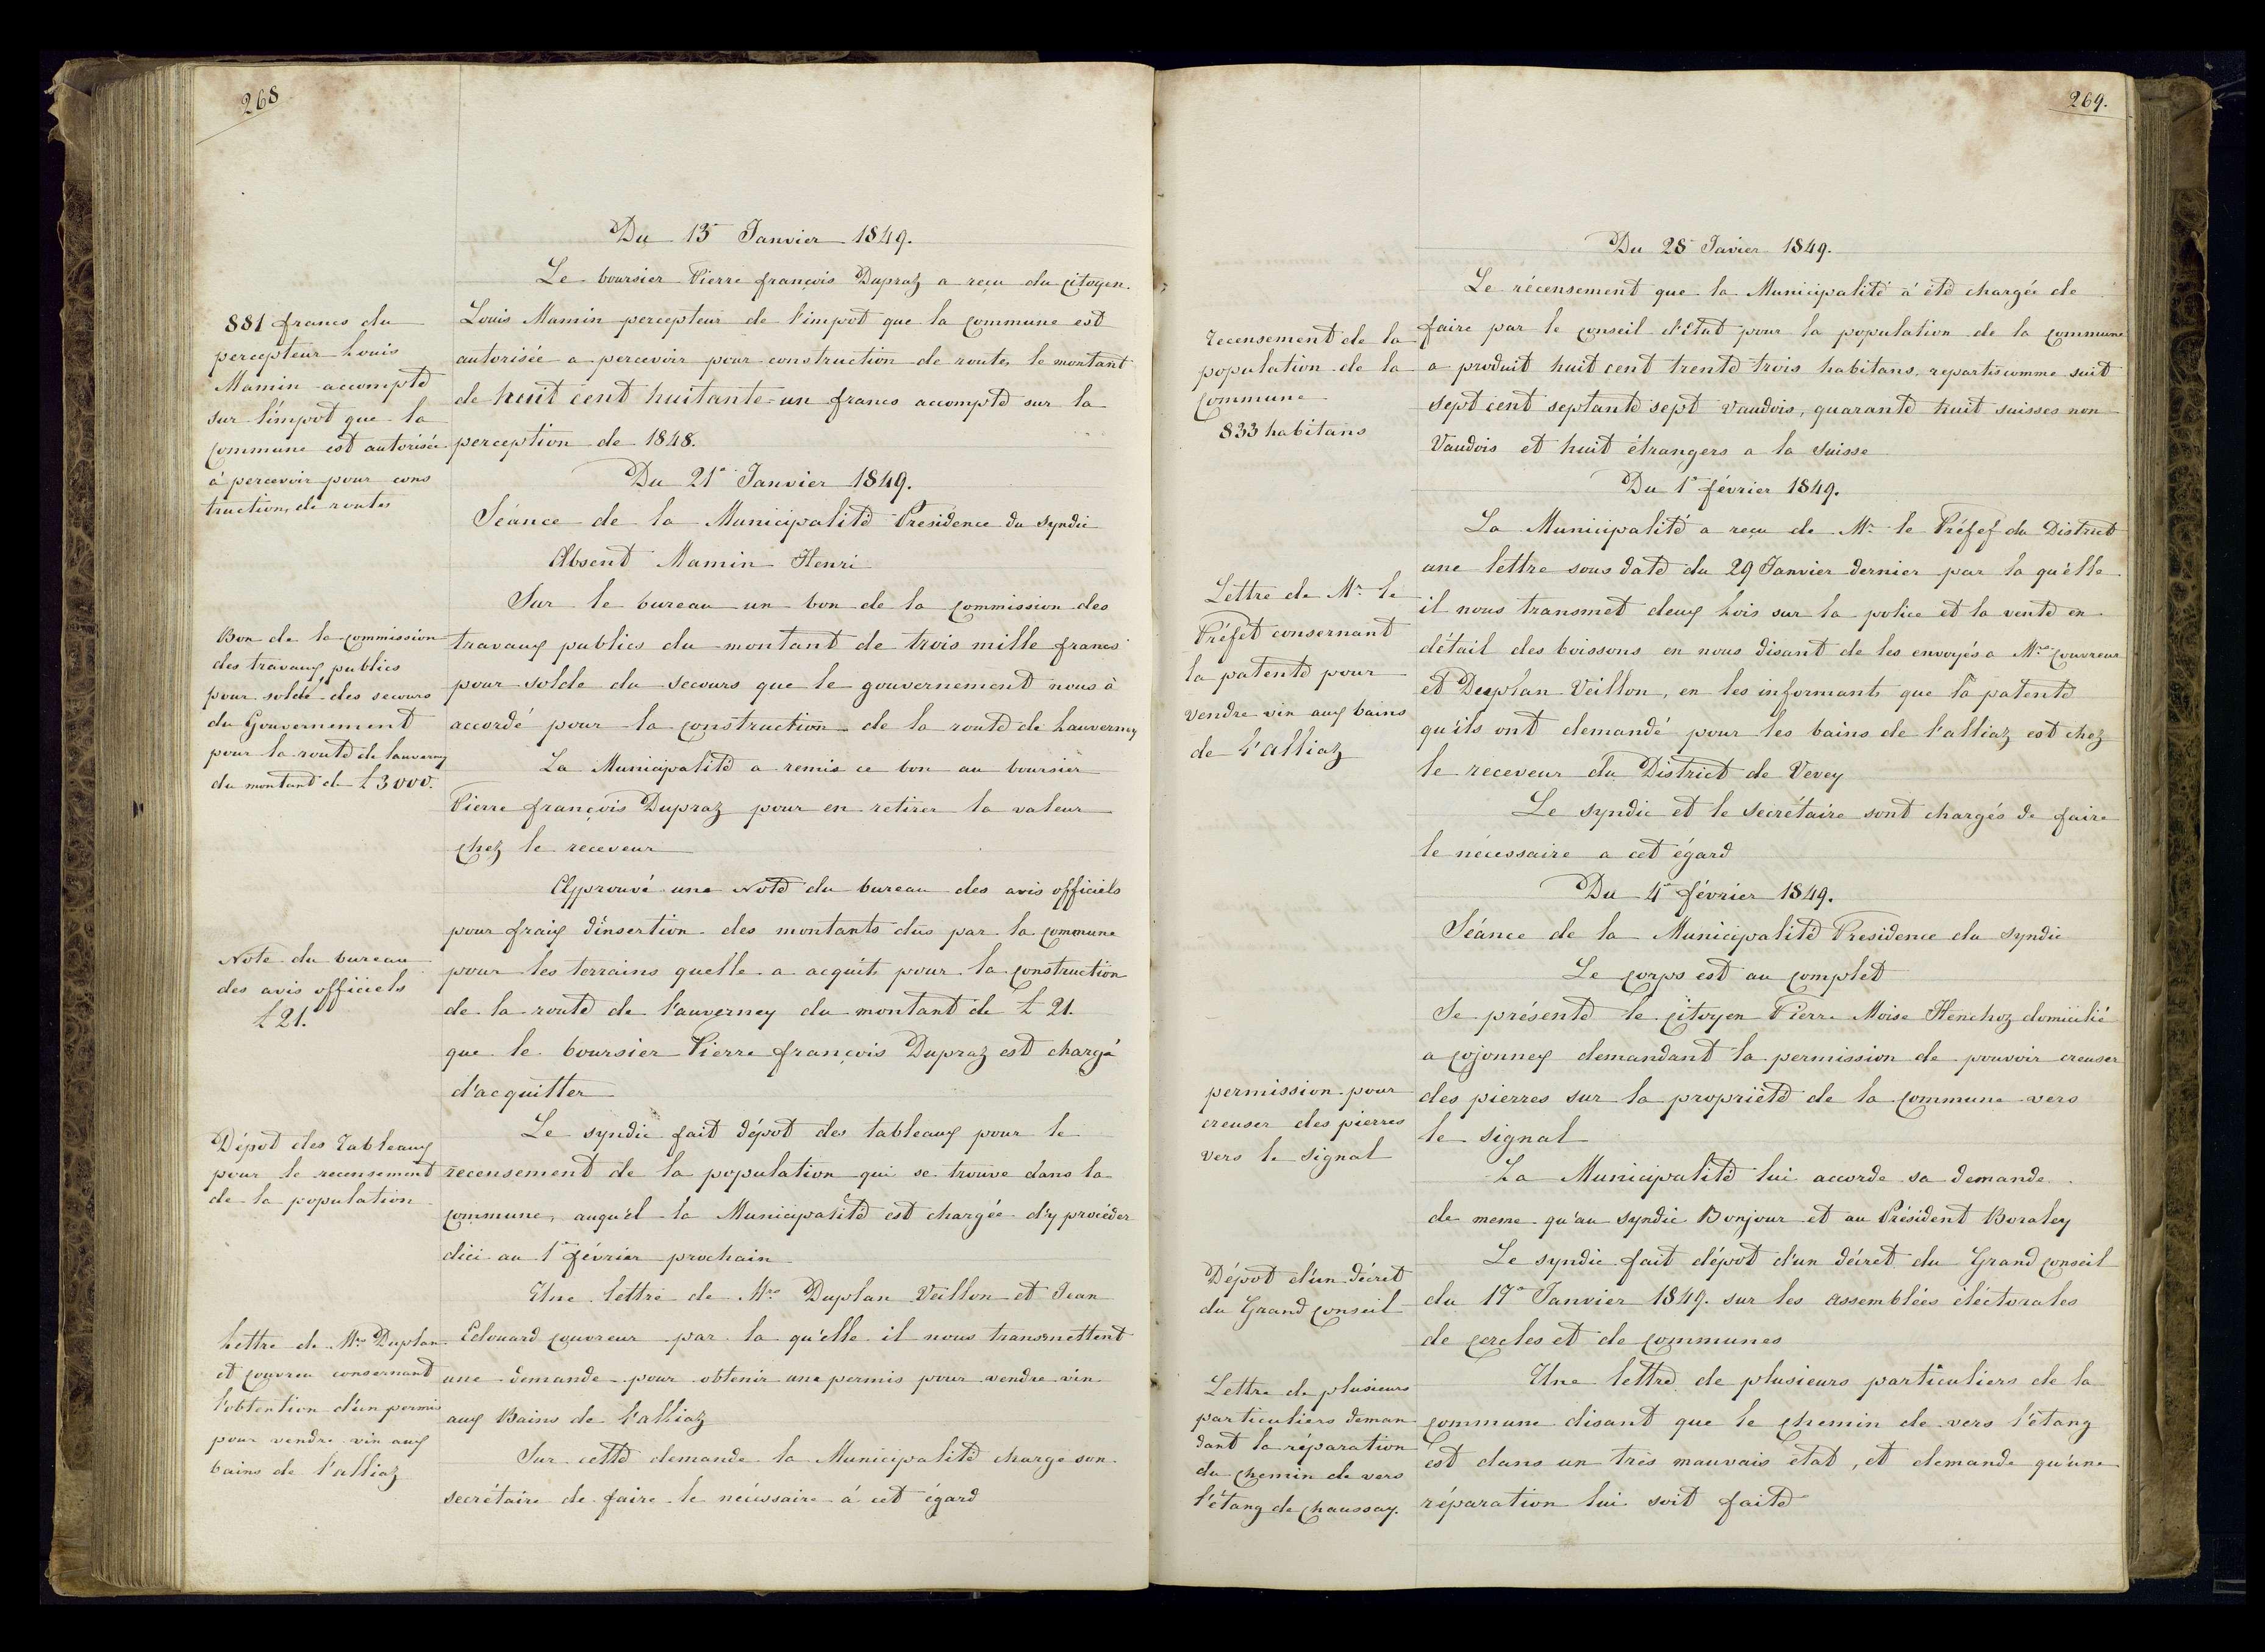 268
Du 15 Janvier 1849.
Le boursier Pierre françois Dupraz a reçu du citoyen
881 francs du
percepteur Louis
Mamin accompte
sur l'impot que la
commune est autorisée
à percevoir pour cons
truction, de routes
Louis Mamin percepteur de l'impot que la commune est
autorisée a percevoir pour construction de route, le montant
de huit cent huitante-un francs accompte sur la
perception de 1848.
Du 21e Janvier 1849.
Séance de la Municipalité Présidence du Syndic
Absent Mamin Henri
Bon de la commission
des travaux publics
pour solde des secours
du Gouvernement
pour la route de lauverney
du montant de £ 3000.
Sur le bureau un bon de la commission des
travaux publics du montant de trois mille francs
pour solde du secours que le gouvernement nous à
accordé pour la construction de la route de Lauverney
La Municipalité a remis ce bon au boursier
Pierre françois Dupraz pour en retirer la valeur
chez le receveur
Note du bureau
des avis officiels
£ 21.
Approuvé une Note du bureau des avis officiels
pour fraix d'insertion des montants dus par la commune
pour les terrains quelle a acquits pour la construction
de la route de l'auverney du montant de £ 21.
que le boursier Pierre françois Dupraz est chargé
d'acquitter
Dépot des Tableaux
pour le recensement
de la population
Le syndic fait dépot des tableaux pour le
recensement de la population qui se trouve dans la
commune, auqu'el la Municipalité est chargée d'y procéder
dici au 1er février prochain
Lettre de Mrs Duplan
et couvreu consernant
l'obtention d'un permis
pour vendre vin aux
bains de l'alliaz
Une lettre de Mrs Duplan Veillon et Jean
Edouard couvreur par la qu'elle il nous transmettent
une demande pour obtenir une permis pour vendre vin
aux Bains de l'alliaz
Sur cette demande la Municipalité charge son
secrétaire de faire le nécessaire à cet égard
269.
Du 28 Javier 1849.
Recensement de la
population de la
commune
833 habitans
Le récensement que la Municipalité à été chargée de
faire par le conseil d'Etat pour la population de la commune
a produit huit cent trente trois habitans, repartis comme suit
sept cent septante sept Vaudois, quarante huit suisses non
Vaudois et huit étrangers a la Suisse
Du 1er février 1849.
Lettre de Mr le
Préfet consernant
la patente pour
vendre vin aux bains
de l'alliaz
La Municipalité a reçu de Mr le Préfef du District
une lettre sous date du 29 Janvier dernier par la qu'elle
il nous transmet deux Lois sur la police et la vente en
détail des boissons en nous disant de les envoyés a Mrs Couvreur
et Duplan Veillon, en les informants que la patente
qu'ils ont demandé pour les bains de l'alliaz est chez
le receveur du District de Vevey
Le syndic et le secrétaire sont chargés de faire
le nécessaire a cet égard
Du 4e février 1849.
Séance de la Municipalité Presidence du Syndic
Le corps est au complet
permission pour
creuser des pierres
vers le signal
Se présente le citoyen Pierre Moise Henchoz domicilié
a cojonnex demandant la permission de pouvoir creuser
des pierres sur la propriété de la commune vers
le signal
La Municipalité lui accorde sa demande
de meme qu'au syndic Bonjour et au Président Boraley
Dépot d'un décret
du Grand conseil
Le syndic fait dépot d'un décret du Grand conseil
du 17e Janvier 1849. sur les assemblées éléctorales
de cercles et de communes
Lettre de plusieurs
particuliers deman
dant la réparation
du chemin de vers
l'étang de chaussay.
Une lettre de plusieurs particuliers de la
commune disant que le chemin de vers l'étang
est dans un très mauvais état, et demande qu'une
réparation lui soit faite